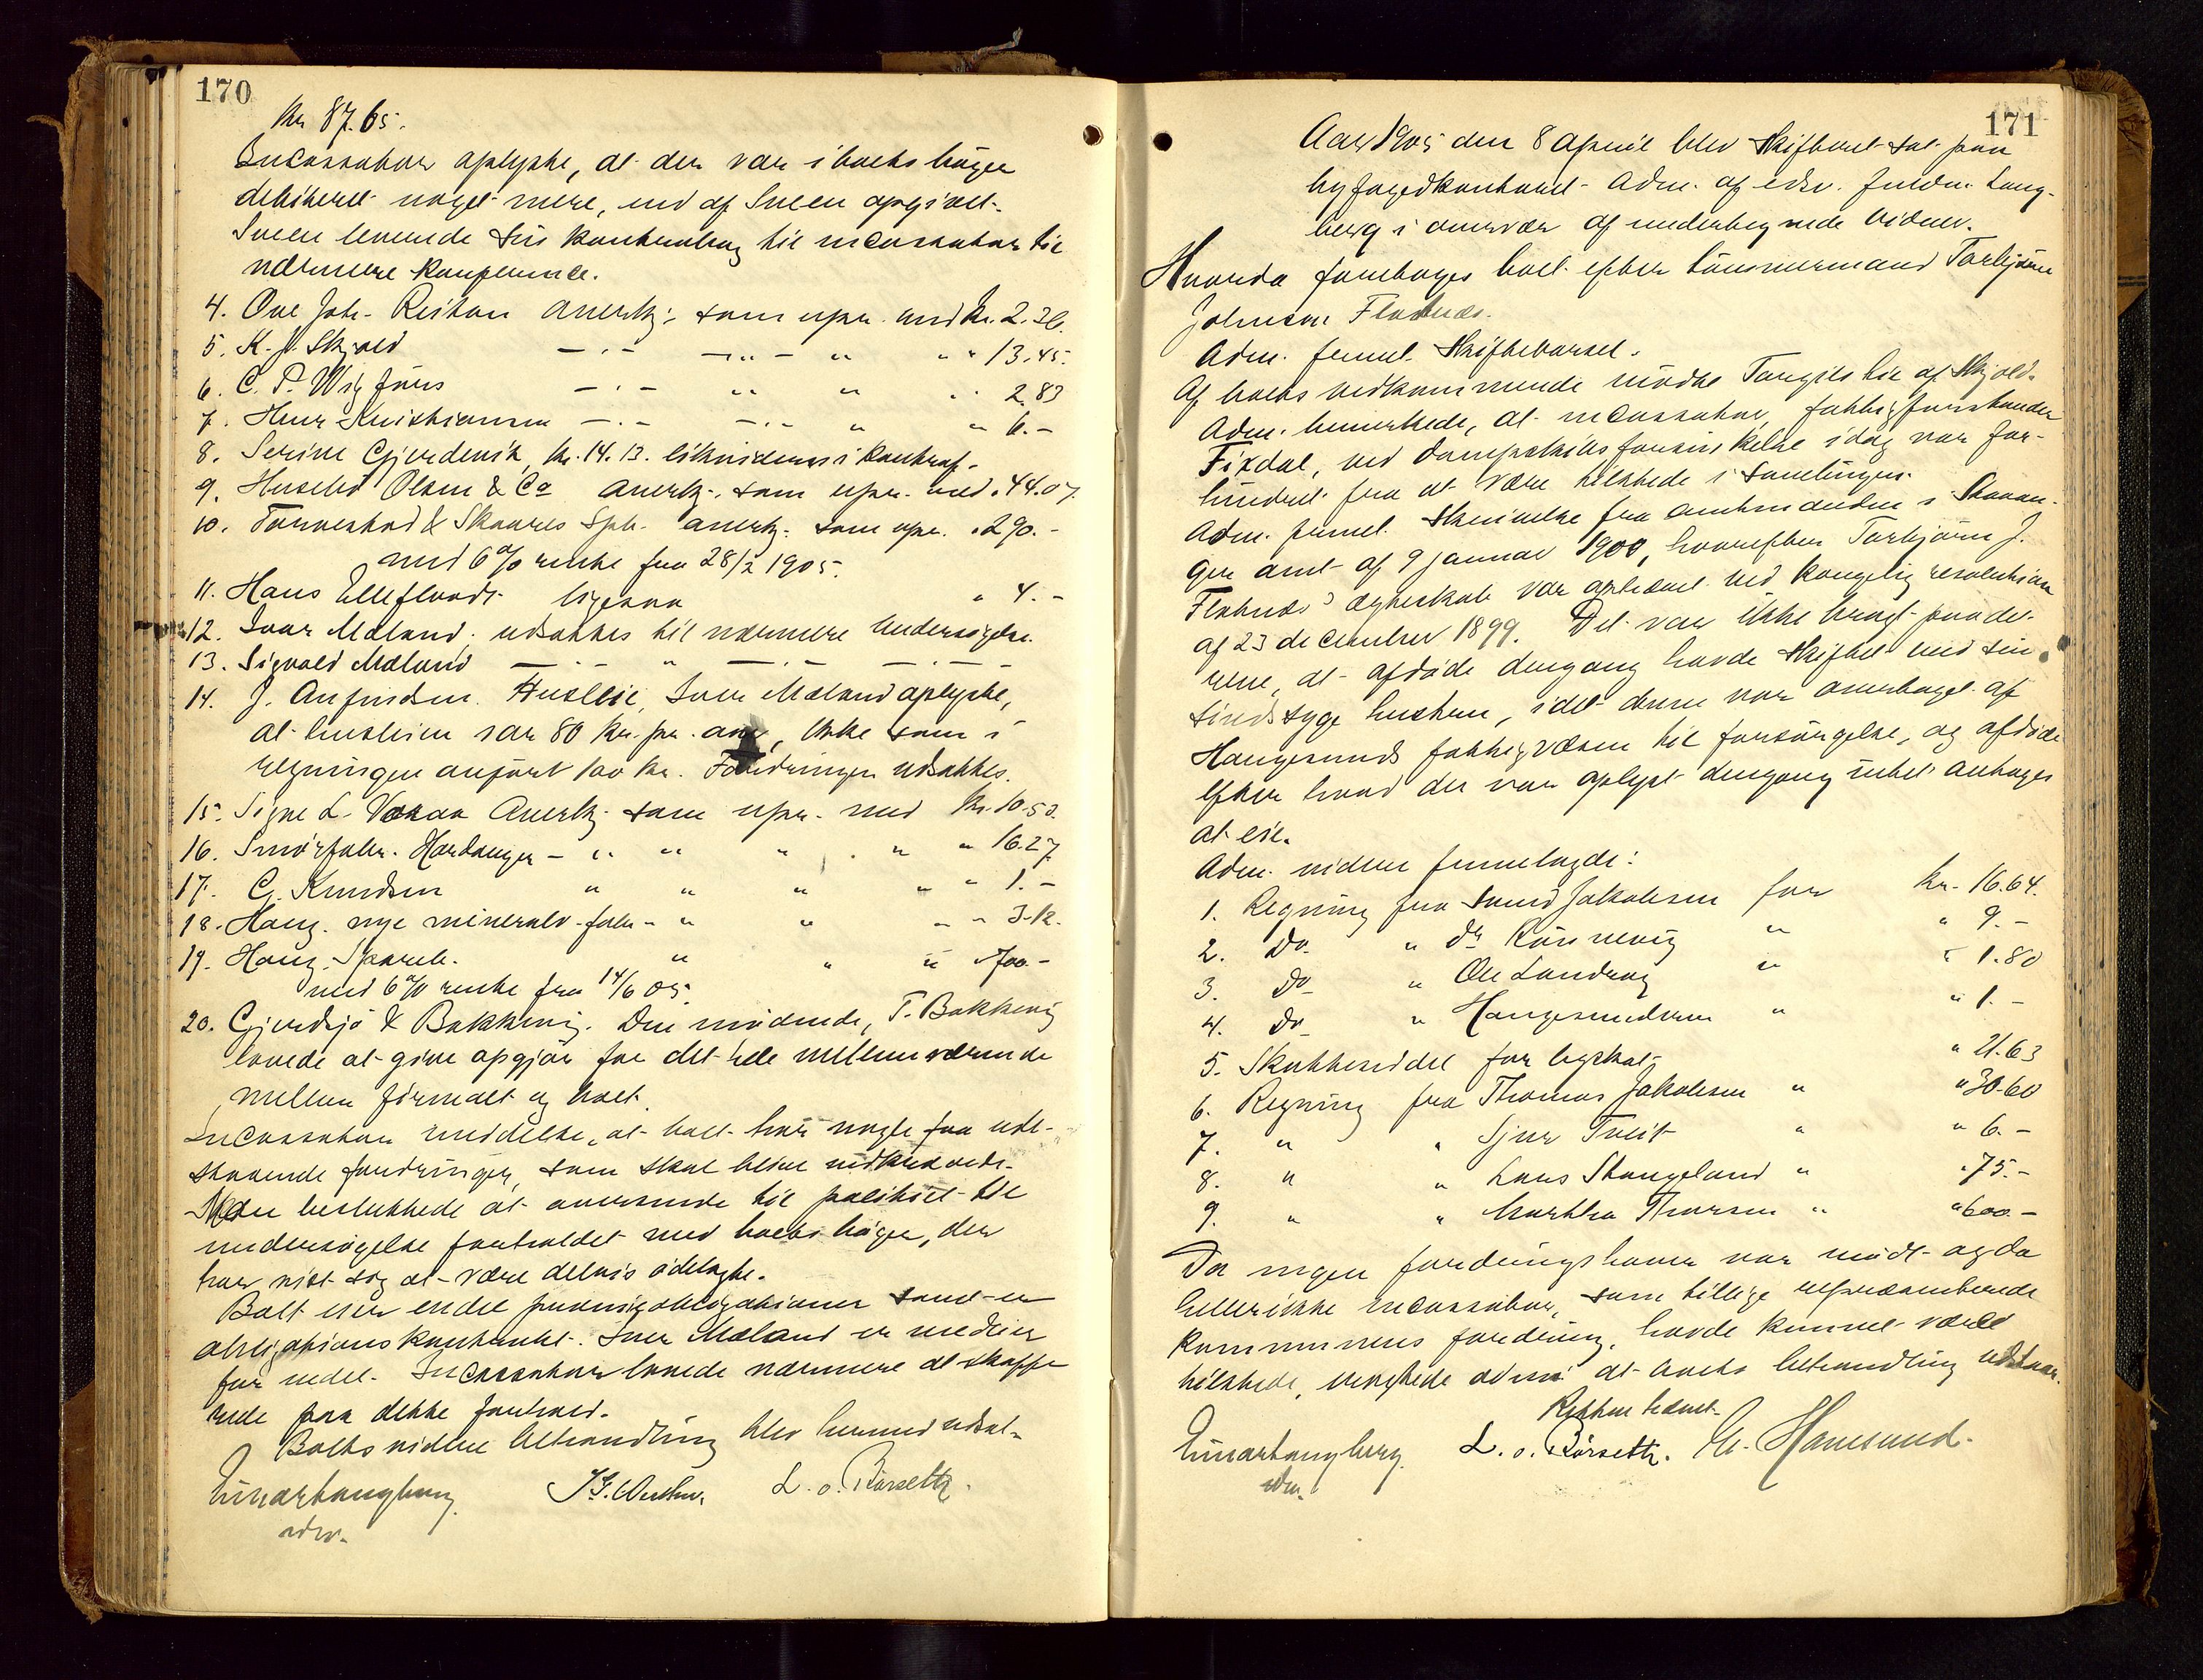 170
Kr 87.65.
Incassator oplyste, at der var i boets bøger
debiteret noget mere, end af Sveen opgivet.
Sveen leverede sin kontrabog til incassator til
nærmere konference.
4. Ove Joh. Reistan anerkj. som upr. med kr. 2.26.
5. K. J. Skjold — . — — „ — „ „ „ 13.45.
6. C. P. Wig — . — „ „ „ 2.83
7. Henr Kristiansen — . — — . — „ „ 6.—
8. Serine Gjerdevik, kr. 14.13. likvideres i kontraf.
9. Huseby Olsen & Co anerkj. som upr. med „ 44.07.
10. Torvestad & Skaares Spb. anerkj. som upr. „ 290.—
med 6% rente fra 28/2 1905.
11. Hans Elleflaadt ligesaa „ 4.—
12. Ivar Mæland. udsattes til nærmere undersøgelse.
13. Sigvald Mæland — . — „ — . — — . —
14. J. Anfindsen. Husleie, Iver Mæland oplyste,
at husleien var 80 kr. pr. aar, ikke som i
regningen anført 100 kr. Fordringen udsattes.
15. Signe L. Vaaga Anerkj. som upr. med kr. 10.50.
16. Smørfabr. Hardanger — „ „ „ „ „ 16.27
17. G. Knudsen „ „ „ „ „ 1.—
18. Haug. nye mineralv. fabr. — „ „ „ „ 3.12.
19. Haug. Spareb. „ „ „ „ 700.—
med 6% rente fra 14/6 05.
20. Gjerdsjø & Bakkevig. Den mødende, T. Bakkevig
lovede at give opgjør for det hele mellemværende
mellem firmaet og boet.
Incassator meddelte, at boet har nogle faa ude-
staaende fordringer, som skal blive indkrævede.
Man besluttede at oversende til politiet til
undersøgelse forholdet med boets bøger, der
har vist sig at være delvis ødelagte.
Boet eier endel præmieobligationer samt en
obligationskontrakt. Iver Mæland er medeier
for endel. Incassator lovede nærmere at skaffe
rede paa dette forhold.
Boets videre behandling blev hermed udsat.
Einar Langberg. L. o. Rørsettr.
edsv.
171
Aar 1905 den 8 april blev skifteret sat paa
byfogedkontoret. Adm. af edsv. fuldm. Lang-
berg i overvær af undertegnede vidner.
Hvorda foretoges boet efter tømmermand Torbjørn
Johnson Flotnæs.
Adm. freml. skiftevarsel.
Af boets vedkommende mødte Torgils Lie af Skjold.
Adm. bemerkede, at incassator, fattigforstander
Fixdal, ved dampskibsforsinkelse idag var for-
hindret fra at være tilstede i samlingen.
Adm. freml. skrivelse fra amtmanden i Stavan-
ger amt af 9 januar 1900, hvorefter Torbjørn J.
Flotnæs's egteskab var opløst ved kongelig resolution
af 23 december 1899. Det var ikke bragt paa det
rene, at afdøde dengang havde skiftet med sin
sindssyge hustru, idet denne var overtaget af
Haugesunds fattigvæsen til forsørgelse, og afdøde
efter hvad der var oplyst dengang intet antoges
at eie.
Adm. videre fremlagde:
1. Regning fra Svend Jakobsen for kr. 16.64.
2. Do. „ dr Rønnevig „ „ 9.—
3. Do „ Ole Landvaag „ „ 1.80
4. Do „ Haugesunderen „ „ 1.—
5. Skatteseddel for byskat „ 21.63
6. Regning fra Thomas Jakobsen „ „ 30.60
7. „ „ Sjur Tveit „ „ 6.—
8. „ „ Lars Stangeland „ „ 75.—
9. „ „ Martha Thorsen „ „ 600.—
Da ingen fordringshaver var mødt og da
heller ikke incassator, som tillige repræsenterede
kommunens fordring, havde kunnet være
tilstede, vedtoges at boets behandling udstaar.
Retten hævet.
Einar Langberg. L. o. Rørsettr. M. Hamsund.
edsv.